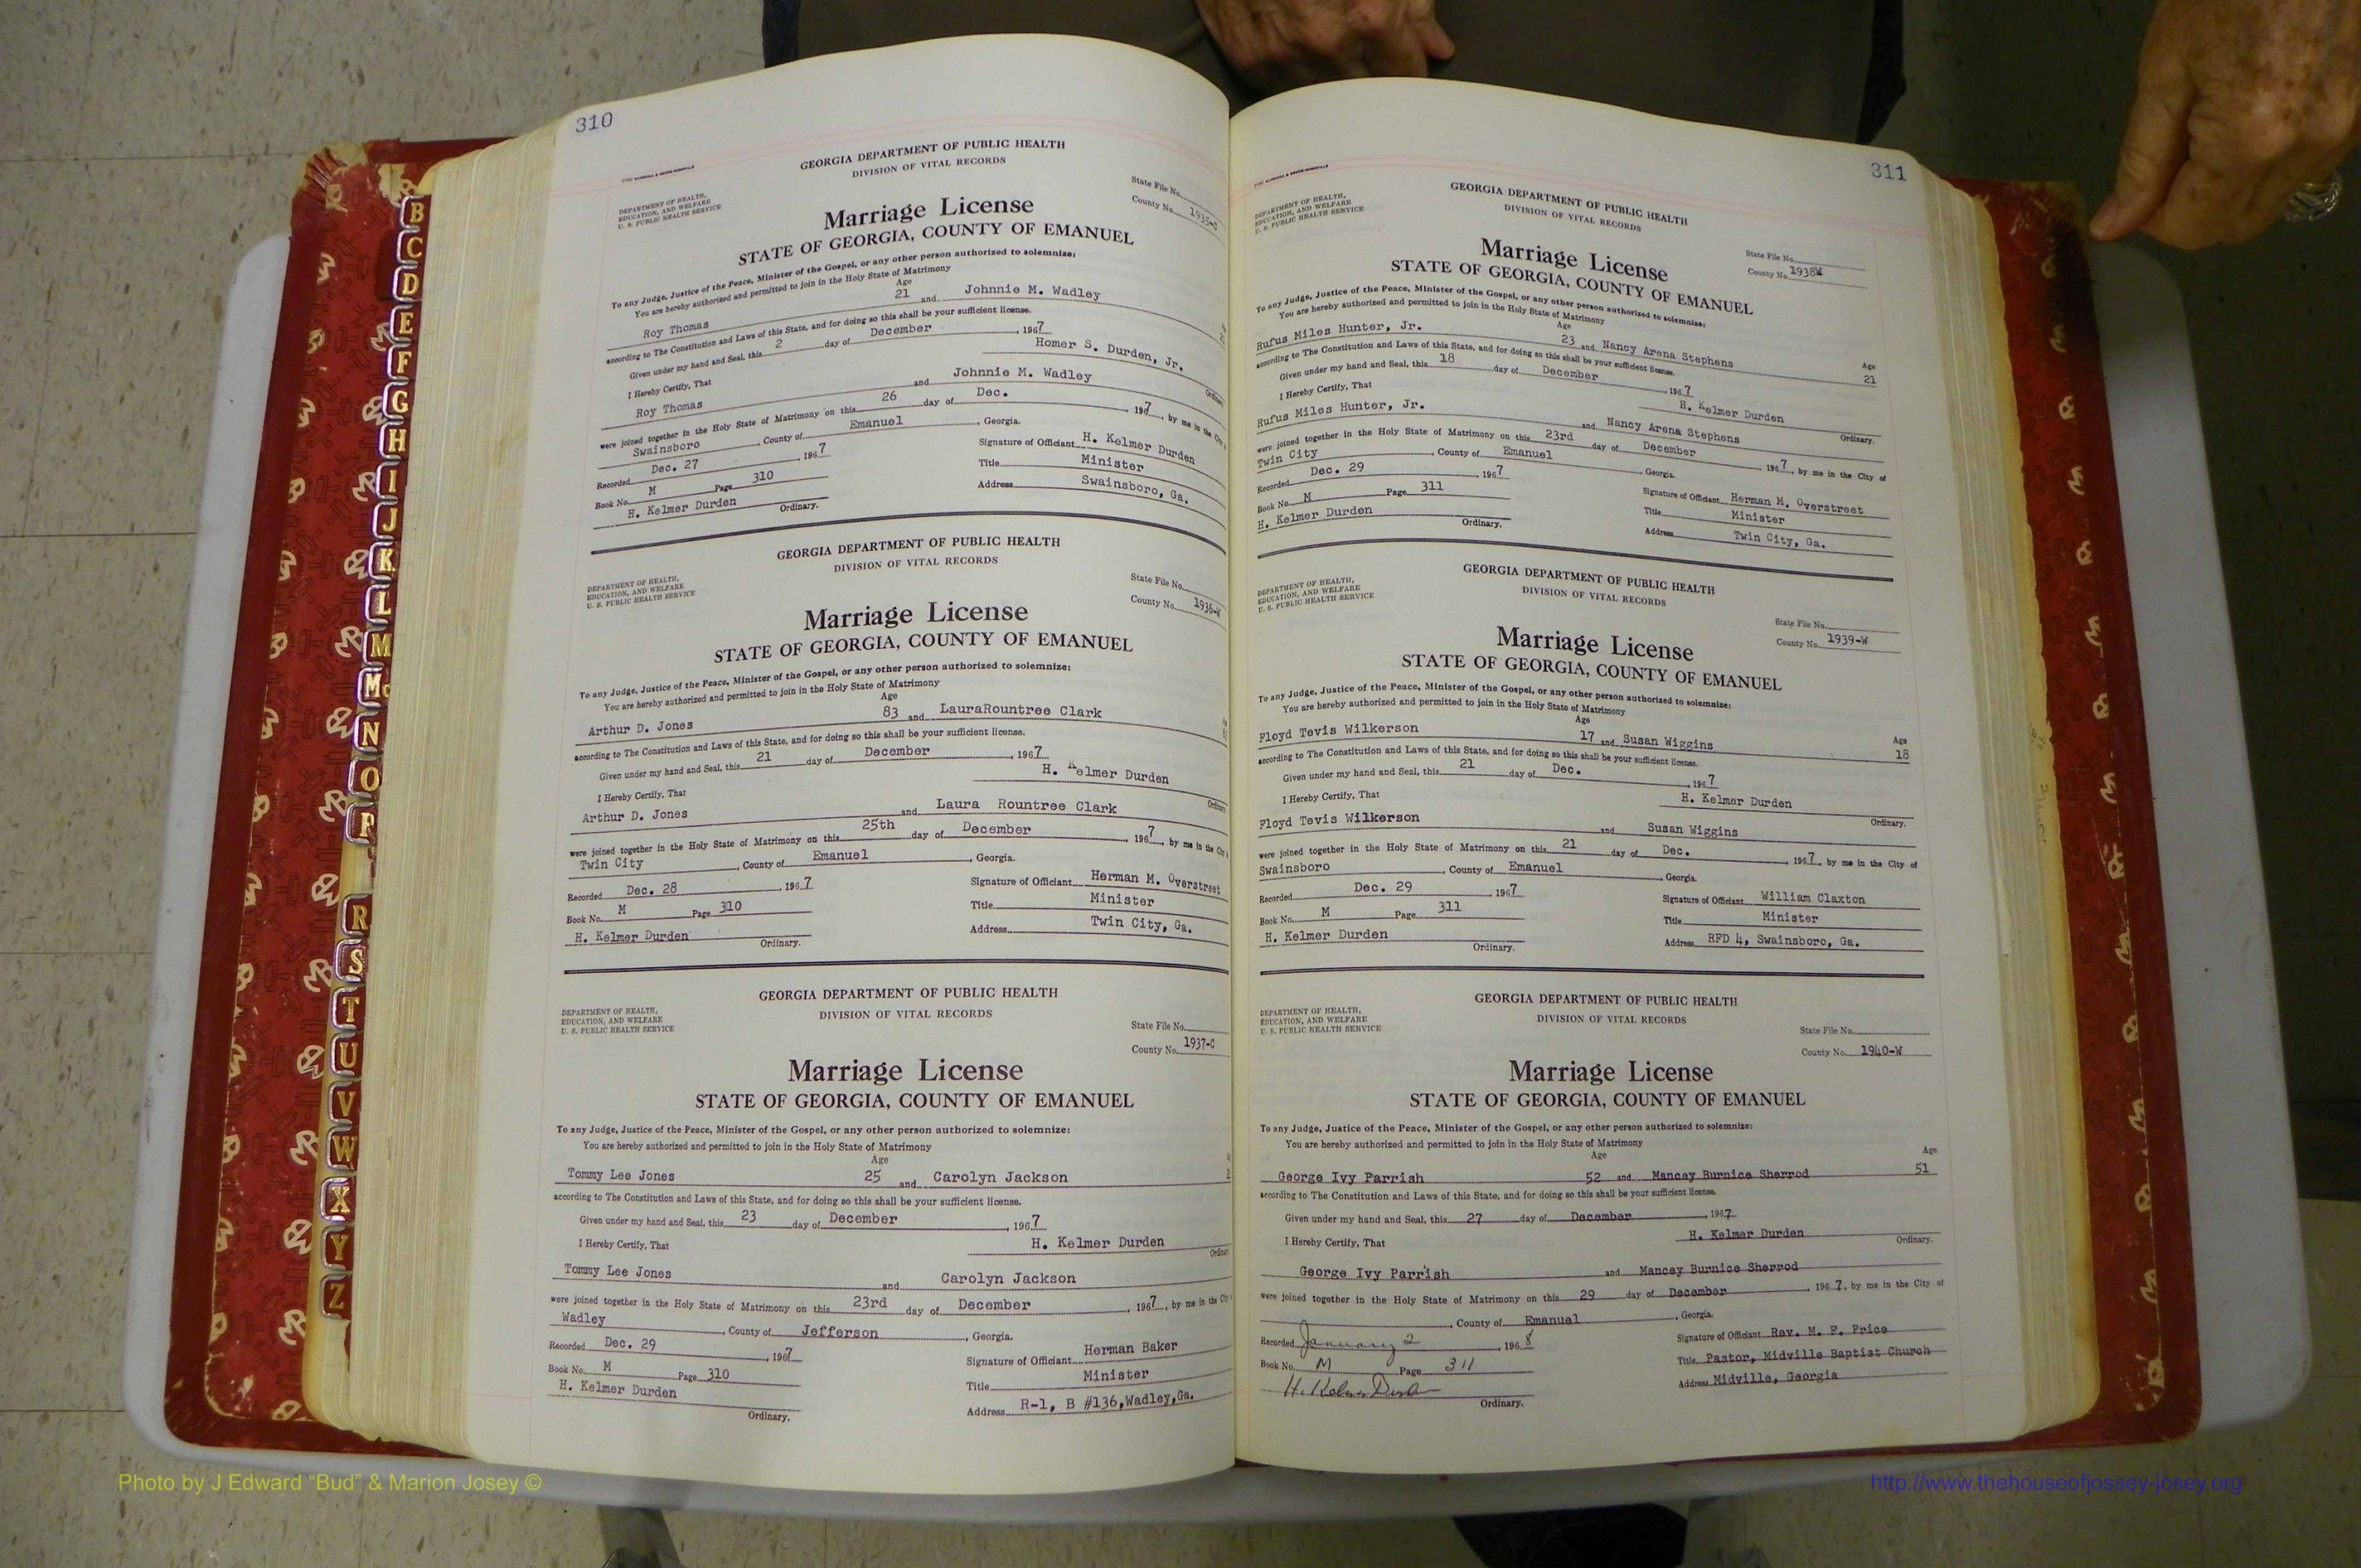 310
GEORGIA DEPARTMENT OF PUBLIC HEALTH
DIVISION OF VITAL RECORDS
DEPARTMENT OF HEALTH,
EDUCATION, AND WELFARE
U. S. PUBLIC HEALTH SERVICE
State File No.
County No. 1935-C
Marriage License
STATE OF GEORGIA, COUNTY OF EMANUEL
To any Judge, Justice of the Peace, Minister of the Gospel, or any other person authorized to solemnize:
You are hereby authorized and permitted to join in the Holy State of Matrimony
Age
Roy Thomas 21 and Johnnie M. Wadley
according to The Constitution and Laws of this State, and for doing so this shall be your sufficient license.
Given under my hand and Seal, this 2 day of December, 1967
Homer S. Durden, Jr.
I Hereby Certify, That
Roy Thomas and Johnnie M. Wadley
were joined together in the Holy State of Matrimony on this 26 day of Dec., 1967, by me in the City
Swainsboro, County of Emanuel, Georgia.
Recorded Dec. 27, 1967
Signature of Officiant H. Kelmer Durden
Book No. M Page 310
Title Minister
H. Kelmer Durden
Address Swainsboro, Ga.
Ordinary.
GEORGIA DEPARTMENT OF PUBLIC HEALTH
DIVISION OF VITAL RECORDS
DEPARTMENT OF HEALTH,
EDUCATION, AND WELFARE
U. S. PUBLIC HEALTH SERVICE
State File No.
County No. 1936-W
Marriage License
STATE OF GEORGIA, COUNTY OF EMANUEL
To any Judge, Justice of the Peace, Minister of the Gospel, or any other person authorized to solemnize:
You are hereby authorized and permitted to join in the Holy State of Matrimony
Age
Arthur D. Jones 83 and LauraRountree Clark
according to The Constitution and Laws of this State, and for doing so this shall be your sufficient license.
Given under my hand and Seal, this 21 day of December, 1967
H. Kelmer Durden
I Hereby Certify, That
Arthur D. Jones and Laura Rountree Clark
were joined together in the Holy State of Matrimony on this 25th day of December, 1967, by me in the
Twin City, County of Emanuel, Georgia.
Recorded Dec. 28, 1967
Signature of Officiant Herman M. Overstreet
Book No. M Page 310
Title Minister
H. Kelmer Durden
Address Twin City, Ga.
Ordinary.
GEORGIA DEPARTMENT OF PUBLIC HEALTH
DIVISION OF VITAL RECORDS
DEPARTMENT OF HEALTH,
EDUCATION, AND WELFARE
U. S. PUBLIC HEALTH SERVICE
State File No.
County No. 1937-C
Marriage License
STATE OF GEORGIA, COUNTY OF EMANUEL
To any Judge, Justice of the Peace, Minister of the Gospel, or any other person authorized to solemnize:
You are hereby authorized and permitted to join in the Holy State of Matrimony
Age
Tommy Lee Jones 25 and Carolyn Jackson
according to The Constitution and Laws of this State, and for doing so this shall be your sufficient license.
Given under my hand and Seal, this 23 day of December, 1967
I Hereby Certify, That
H. Kelmer Durden
Tommy Lee Jones and Carolyn Jackson
were joined together in the Holy State of Matrimony on this 23rd day of December, 1967, by me in the
Wadley, County of Jefferson, Georgia.
Recorded Dec. 29, 1967
Signature of Officiant Herman Baker
Book No. M Page 310
Title Minister
H. Kelmer Durden
Address R-1, B #136,Wadley,Ga.
Ordinary.
311
GEORGIA DEPARTMENT OF PUBLIC HEALTH
DIVISION OF VITAL RECORDS
DEPARTMENT OF HEALTH,
EDUCATION, AND WELFARE
U. S. PUBLIC HEALTH SERVICE
State File No.
County No. 1938W
Marriage License
STATE OF GEORGIA, COUNTY OF EMANUEL
To any Judge, Justice of the Peace, Minister of the Gospel, or any other person authorized to solemnize:
You are hereby authorized and permitted to join in the Holy State of Matrimony
Age Age
Rufus Miles Hunter, Jr. 23 and Nancy Arena Stephens 21
according to The Constitution and Laws of this State, and for doing so this shall be your sufficient license.
Given under my hand and Seal, this 18 day of December, 1967
I Hereby Certify, That
H. Kelmer Durden
Ordinary.
Rufus Miles Hunter, Jr. and Nancy Arena Stephens
were joined together in the Holy State of Matrimony on this 23rd day of December, 1967, by me in the City of
Twin City, County of Emanuel, Georgia.
Recorded Dec. 29, 1967
Signature of Officiant Herman M. Overstreet
Book No. M Page 311
Title Minister
H. Kelmer Durden
Address Twin City, Ga.
Ordinary.
GEORGIA DEPARTMENT OF PUBLIC HEALTH
DIVISION OF VITAL RECORDS
DEPARTMENT OF HEALTH,
EDUCATION, AND WELFARE
U. S. PUBLIC HEALTH SERVICE
State File No.
County No. 1939-W
Marriage License
STATE OF GEORGIA, COUNTY OF EMANUEL
To any Judge, Justice of the Peace, Minister of the Gospel, or any other person authorized to solemnize:
You are hereby authorized and permitted to join in the Holy State of Matrimony
Age Age
Floyd Tevis Wilkerson 17 and Susan Wiggins 18
according to The Constitution and Laws of this State, and for doing so this shall be your sufficient license.
Given under my hand and Seal, this 21 day of Dec., 1967
I Hereby Certify, That
H. Kelmer Durden
Ordinary.
Floyd Tevis Wilkerson and Susan Wiggins
were joined together in the Holy State of Matrimony on this 21 day of Dec., 1967, by me in the City of
Swainsboro, County of Emanuel, Georgia.
Recorded Dec. 29, 1967
Signature of Officiant William Claxton
Book No. M Page 311
Title Minister
H. Kelmer Durden
Address RFD 4, Swainsboro, Ga.
Ordinary.
GEORGIA DEPARTMENT OF PUBLIC HEALTH
DIVISION OF VITAL RECORDS
DEPARTMENT OF HEALTH,
EDUCATION, AND WELFARE
U. S. PUBLIC HEALTH SERVICE
State File No.
County No. 1940-W
Marriage License
STATE OF GEORGIA, COUNTY OF EMANUEL
To any Judge, Justice of the Peace, Minister of the Gospel, or any other person authorized to solemnize:
You are hereby authorized and permitted to join in the Holy State of Matrimony
Age Age
George Ivy Parrish 52 and Mancey Burnice Sherrod 51
according to The Constitution and Laws of this State, and for doing so this shall be your sufficient license.
Given under my hand and Seal, this 27 day of December, 1967
I Hereby Certify, That
H. Kelmer Durden
Ordinary.
George Ivy Parrish and Mancey Burnice Sherrod
were joined together in the Holy State of Matrimony on this 29 day of December, 1967, by me in the City of
, County of Emanuel, Georgia.
Recorded January 2, 1968
Signature of Officiant Rev. M. F. Price
Book No. M Page 311
Title Pastor, Midville Baptist Church
H. Kelmer Durden
Address Midville, Georgia
Ordinary.
B
C
D
E
F
G
H
I
J
K
L
M
Mc
N
O
P
R
S
T
U
V
W
X
Y
Z
Photo by J Edward “Bud” & Marion Josey ©
http://www.thehouseofjossey-josey.org